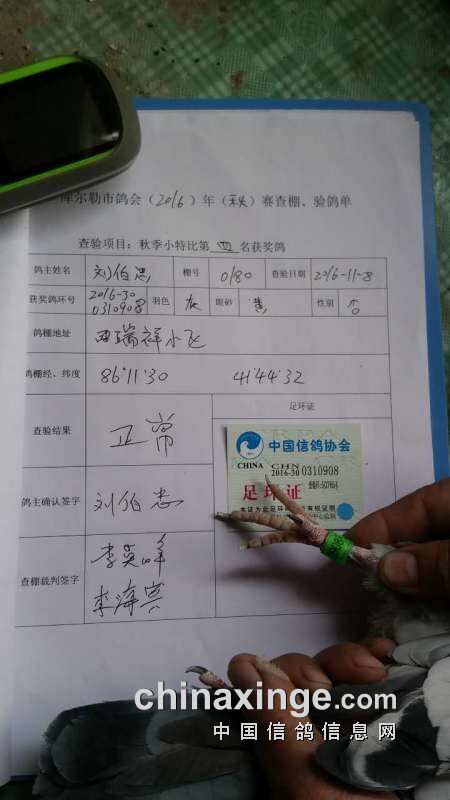 库尔勒市鸽会（2016）年（秋）赛查棚、验鸽单
查验项目：秋季小特比第 四 名获奖鸽
鸽主姓名 刘伯忠 棚号 0180 查验日期 2016-11-8
获奖鸽环号 2016-30 0310908 羽色 灰 眼砂 黄 性别
鸽棚地址 西瑞祥小区
鸽棚经、纬度 86°11'30 41°44'32
足环证
查验结果 正常
中国信鸽协会
CHINA CHN
2016-30 0310908
足环证
鸽主确认签字 刘伯忠
查棚裁判签字 李英峰
李海宾
chinaxinge.com
中国信鸽信息网